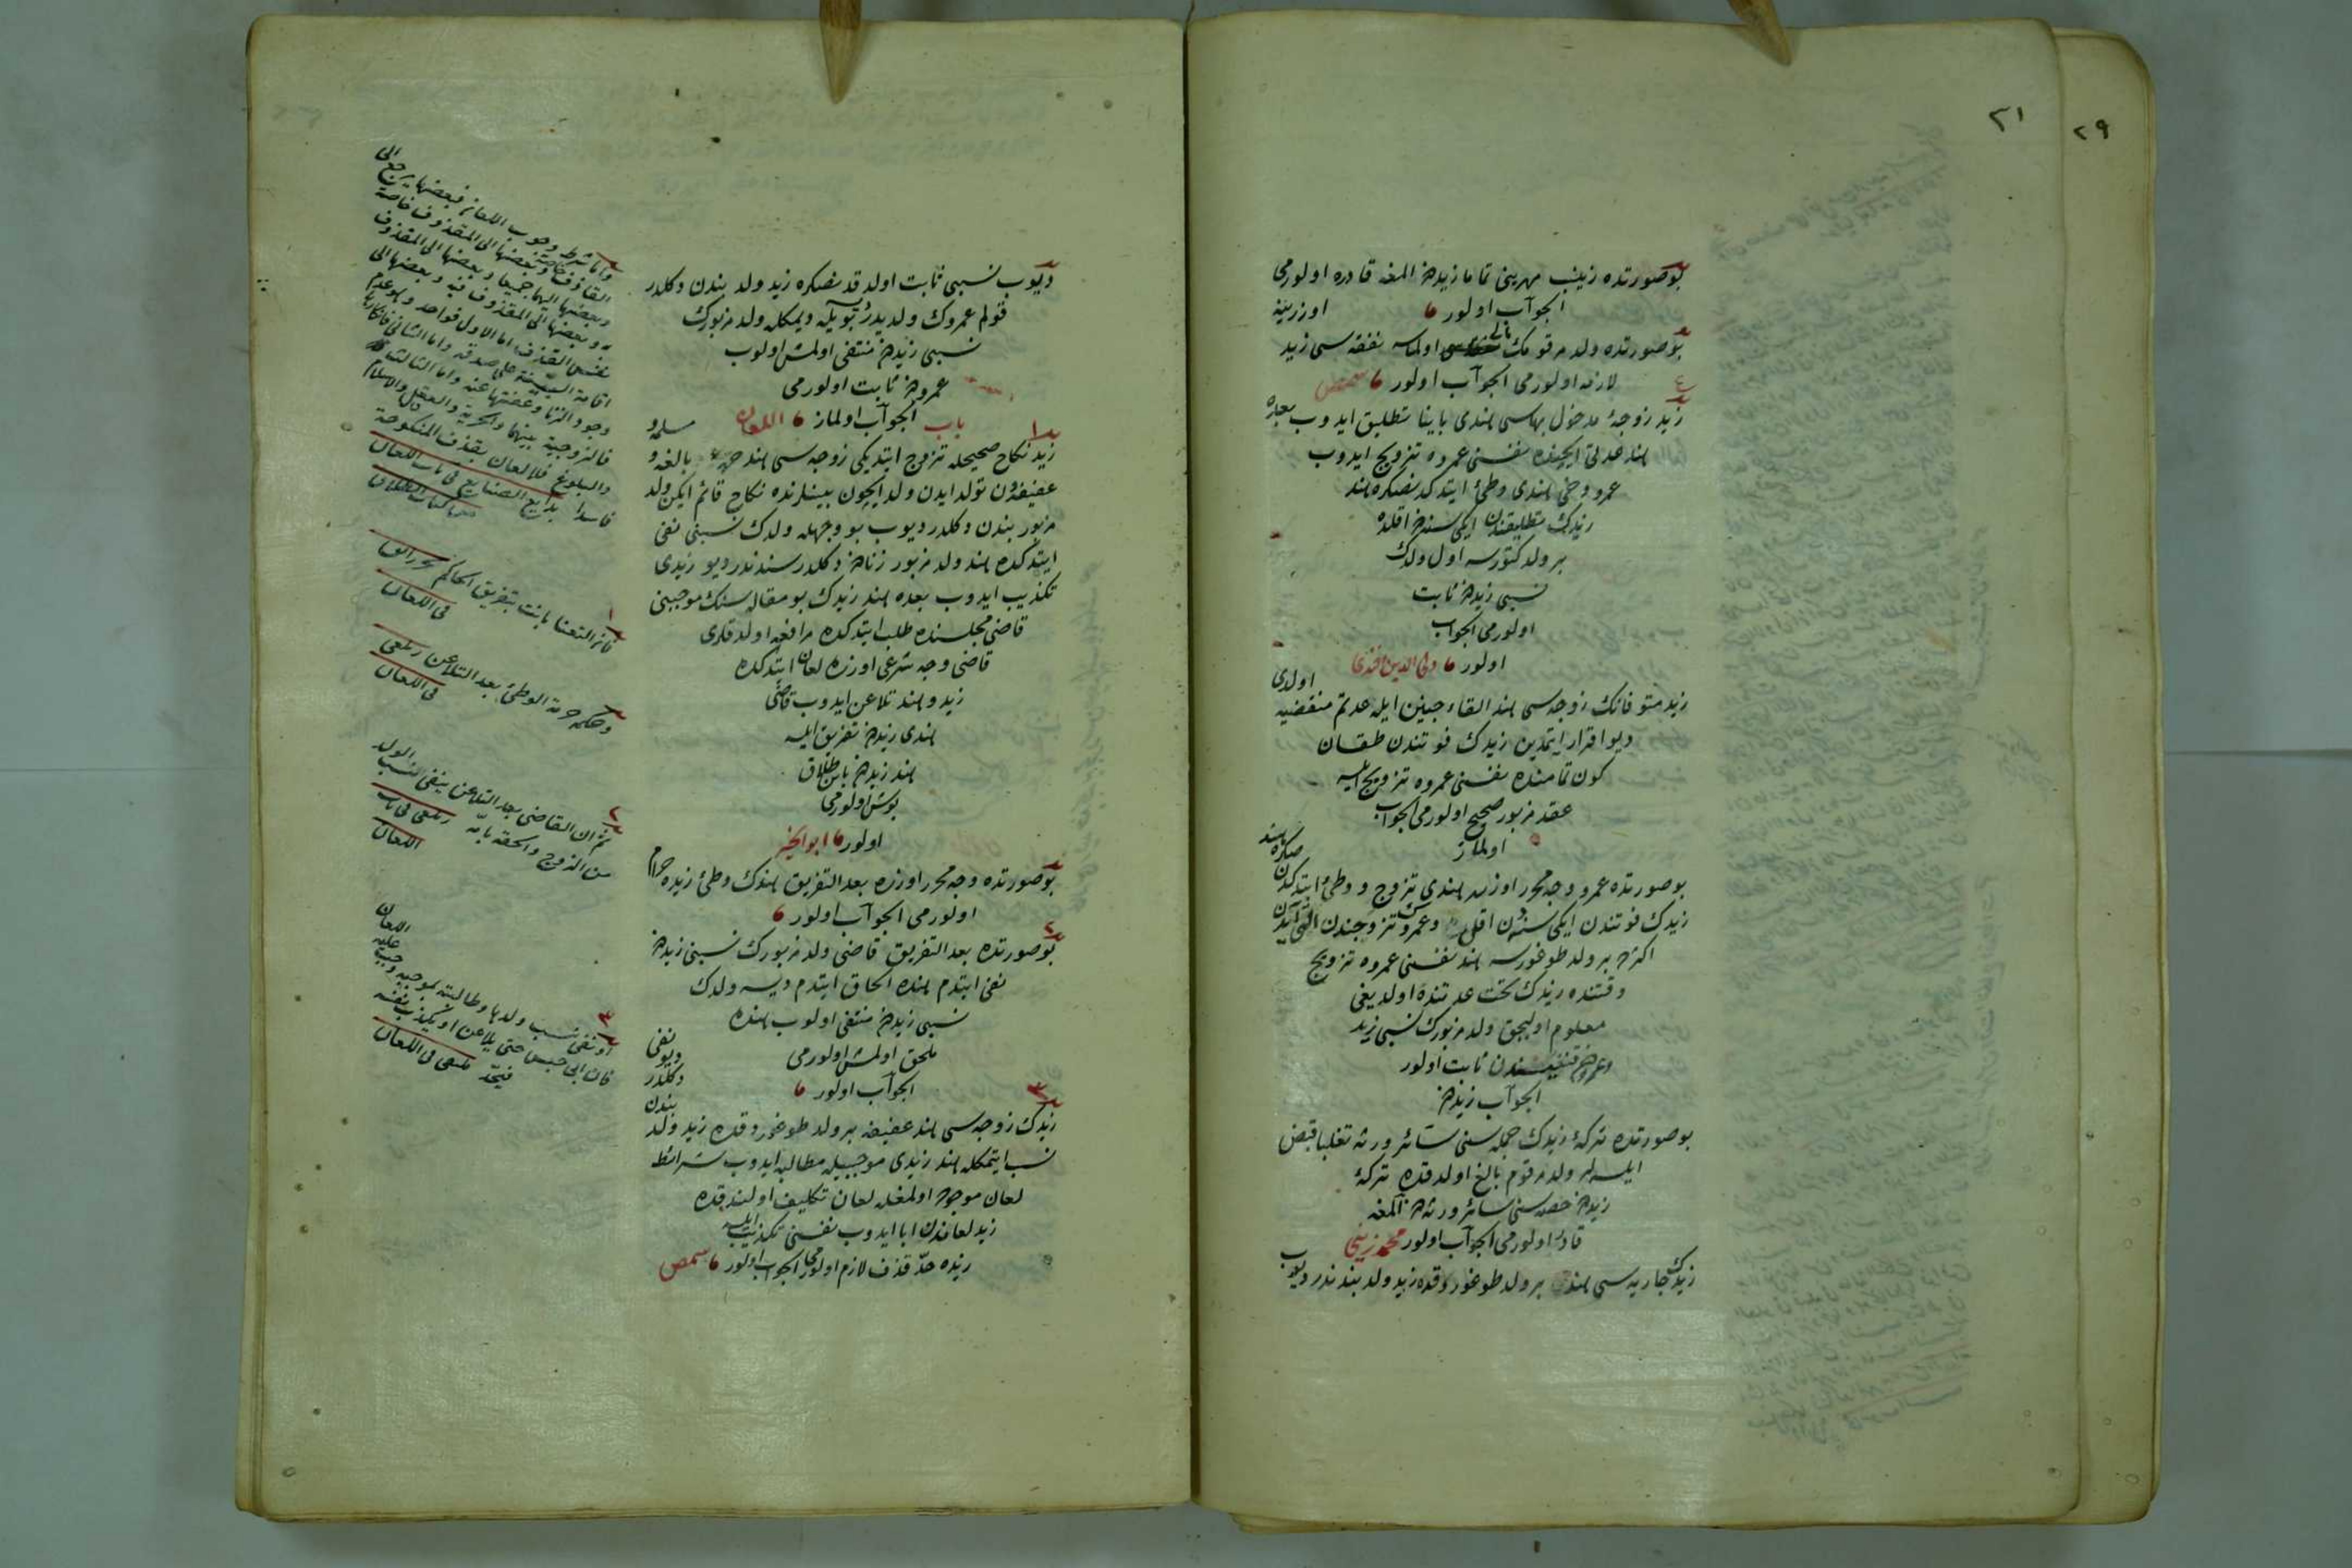 ٢١
٢٩
بوصورتده زينب مهرينى تماما زيددن المغه قادره اولورمى
الجواب اولور
بوصورتده ولد مرقومك مالى اولماسه نفقه سى زيد اوزرينه
لازمه اولورمى الجواب اولور
زيد زوجۀ مدخول بهاسى هندى باينا تطليق ايدوب بعده
هند عدتى ايچنده نفسنى عمروه تزويج ايدوب
عمرو دخى هندى وطئ ايتدكدنصكره هند
زيدك تطليقندن ايكى سنه دن اقلده
بر ولد كتورسه اول ولدك
نسبى زيددن ثابت
اولورمى الجواب
اولور ولى الدين افندى
زيد متوفانك زوجه سى هند القاء جنين ايله عدتم منقضيه اولدى
ديو اقرار ايتمدين زيدك فوتندن طقسان
كون تمامنده نفسنى عمروه تزويج ايلسه
عقد مزبور صحيح اولورمى الجواب
اولماز
بوصورتده عمرو وجه محرر اوزره هندى تزوج و وطئ ايتدكدن صكره هند
زيدك فوتندن ايكى سنه دن اقل وعمروك تزوجندن التى آيدن
اكثرده بر ولد طوغورسه هند نفسنى عمروه تزويج
وقتنده زيدك تحت عدتنده اولديغى
معلوم اوليجق ولد مزبورك نسبى زيد
وعمرودن قنغيسندن ثابت اولور
الجواب زيددن
بوصورتده تركۀ زيدك جمله سنى سائر ورثه تغلبا قبض
ايلسه لر ولد مرقوم بالغ اولدقده تركۀ
زيددن حصه سنى سائر ورثه دن آلمغه
قادر اولورمى الجواب اولور محمد زينى
زيدك جاريه سى هند بر ولد طوغوردقده زيد ولد بندندر ديوب
ديوب نسبى ثابت اولدقدنصكره زيد ولد بندن دكلدر
قولم عمروك ولديدر ديمكله ولد مزبورك
نسبى زيددن منتفى اولمش اولوب
عمرودن ثابت اولورمى
الجواب اولماز باب اللعان
زيد نكاح صحيحله تزوج ايتديكى زوجه سى هند حره بالغه و مسلمه و
عفيفه دن تولد ايدن ولد ايچون بينلرنده نكاح قائم ايكن ولد
مزبور بندن دكلدر ديوب بو وجهله ولدك نسبنى نفى
ايتدكده هند ولد مزبور زنادن دكلدر سندندر ديو زيدى
تكذيب ايدوب بعده هند زيدك بو مقاله سنك موجبنى
قاضى مجلسنده طلب ايتدكده مرافعه اولدقلرى
قاضى وجه شرعى اوزره لعان ايتدكده
زيد و هند تلاعن ايدوب قاضى
هندى زيددن تفريق ايلسه
هند زيددن باين طلاق
بوش اولورمى
اولور ابو الخير
بوصورتده وجه محرر اوزره بعد التفريق هندك وطئ زيده حرام
اولورمى الجواب اولور
بوصورتده بعد التفريق قاضى ولد مزبورك نسبنى زيددن
نفى ايتدم هنده الحاق ايتدم ديسه ولدك
نسبى زيددن منتفى اولوب هنده
ملحق اولمش اولورمى
الجواب اولور
زيدك زوجه سى هند عفيفه بر ولد طوغوردقده زيد ولد بندن دكلدر ديو نفى
نسب ايتمكله هند زيدى موجبيله مطالبه ايدوب شرائط
لعان موجوده اولمغله لعان تكليف اولندقده
زيد لعاندن ابا ايدوب نفسنى تكذيب ايلسه
زيده حد قذف لازم اولورمى الجواب اولور
واما شرط وجوب اللعان فبعضها يرجع الى
القاذف خاصة وبعضها الى المقذوف خاصة
وبعضها اليهما جميعا وبعضها الى المقذوف
به وبعضها الى المقذوف فيه وبعضها الى
نفس القذف اما الاول فواحد وهو عدم
اقامة البينة على صدقه واما الثانى فانكارها
وجود الزنا وعفتها عنه واما الثالث
فالزوجية بينهما والحرية والعقل والاسلام
والبلوغ فلا لعان بقذف المنكوحة
فاسدا بدايع الصنايع فى باب اللعان
من كتاب الطلاق
فان التعنا بانت بتفريق الحاكم بحر رائق
فى اللعان
وحكمه حرمة الوطئ بعد التلاعن زيلعى
فى اللعان
ثم ان القاضى بعد التلاعن ينفى نسب الولد
من الزوج والحقه بامه زيلعى فى باب
اللعان
او نفى نسب ولدها وطالبته بموجبه وجب عليه اللعان
فان ابى حبس حتى يلاعن او يكذب نفسه
فيحد فى اللعان